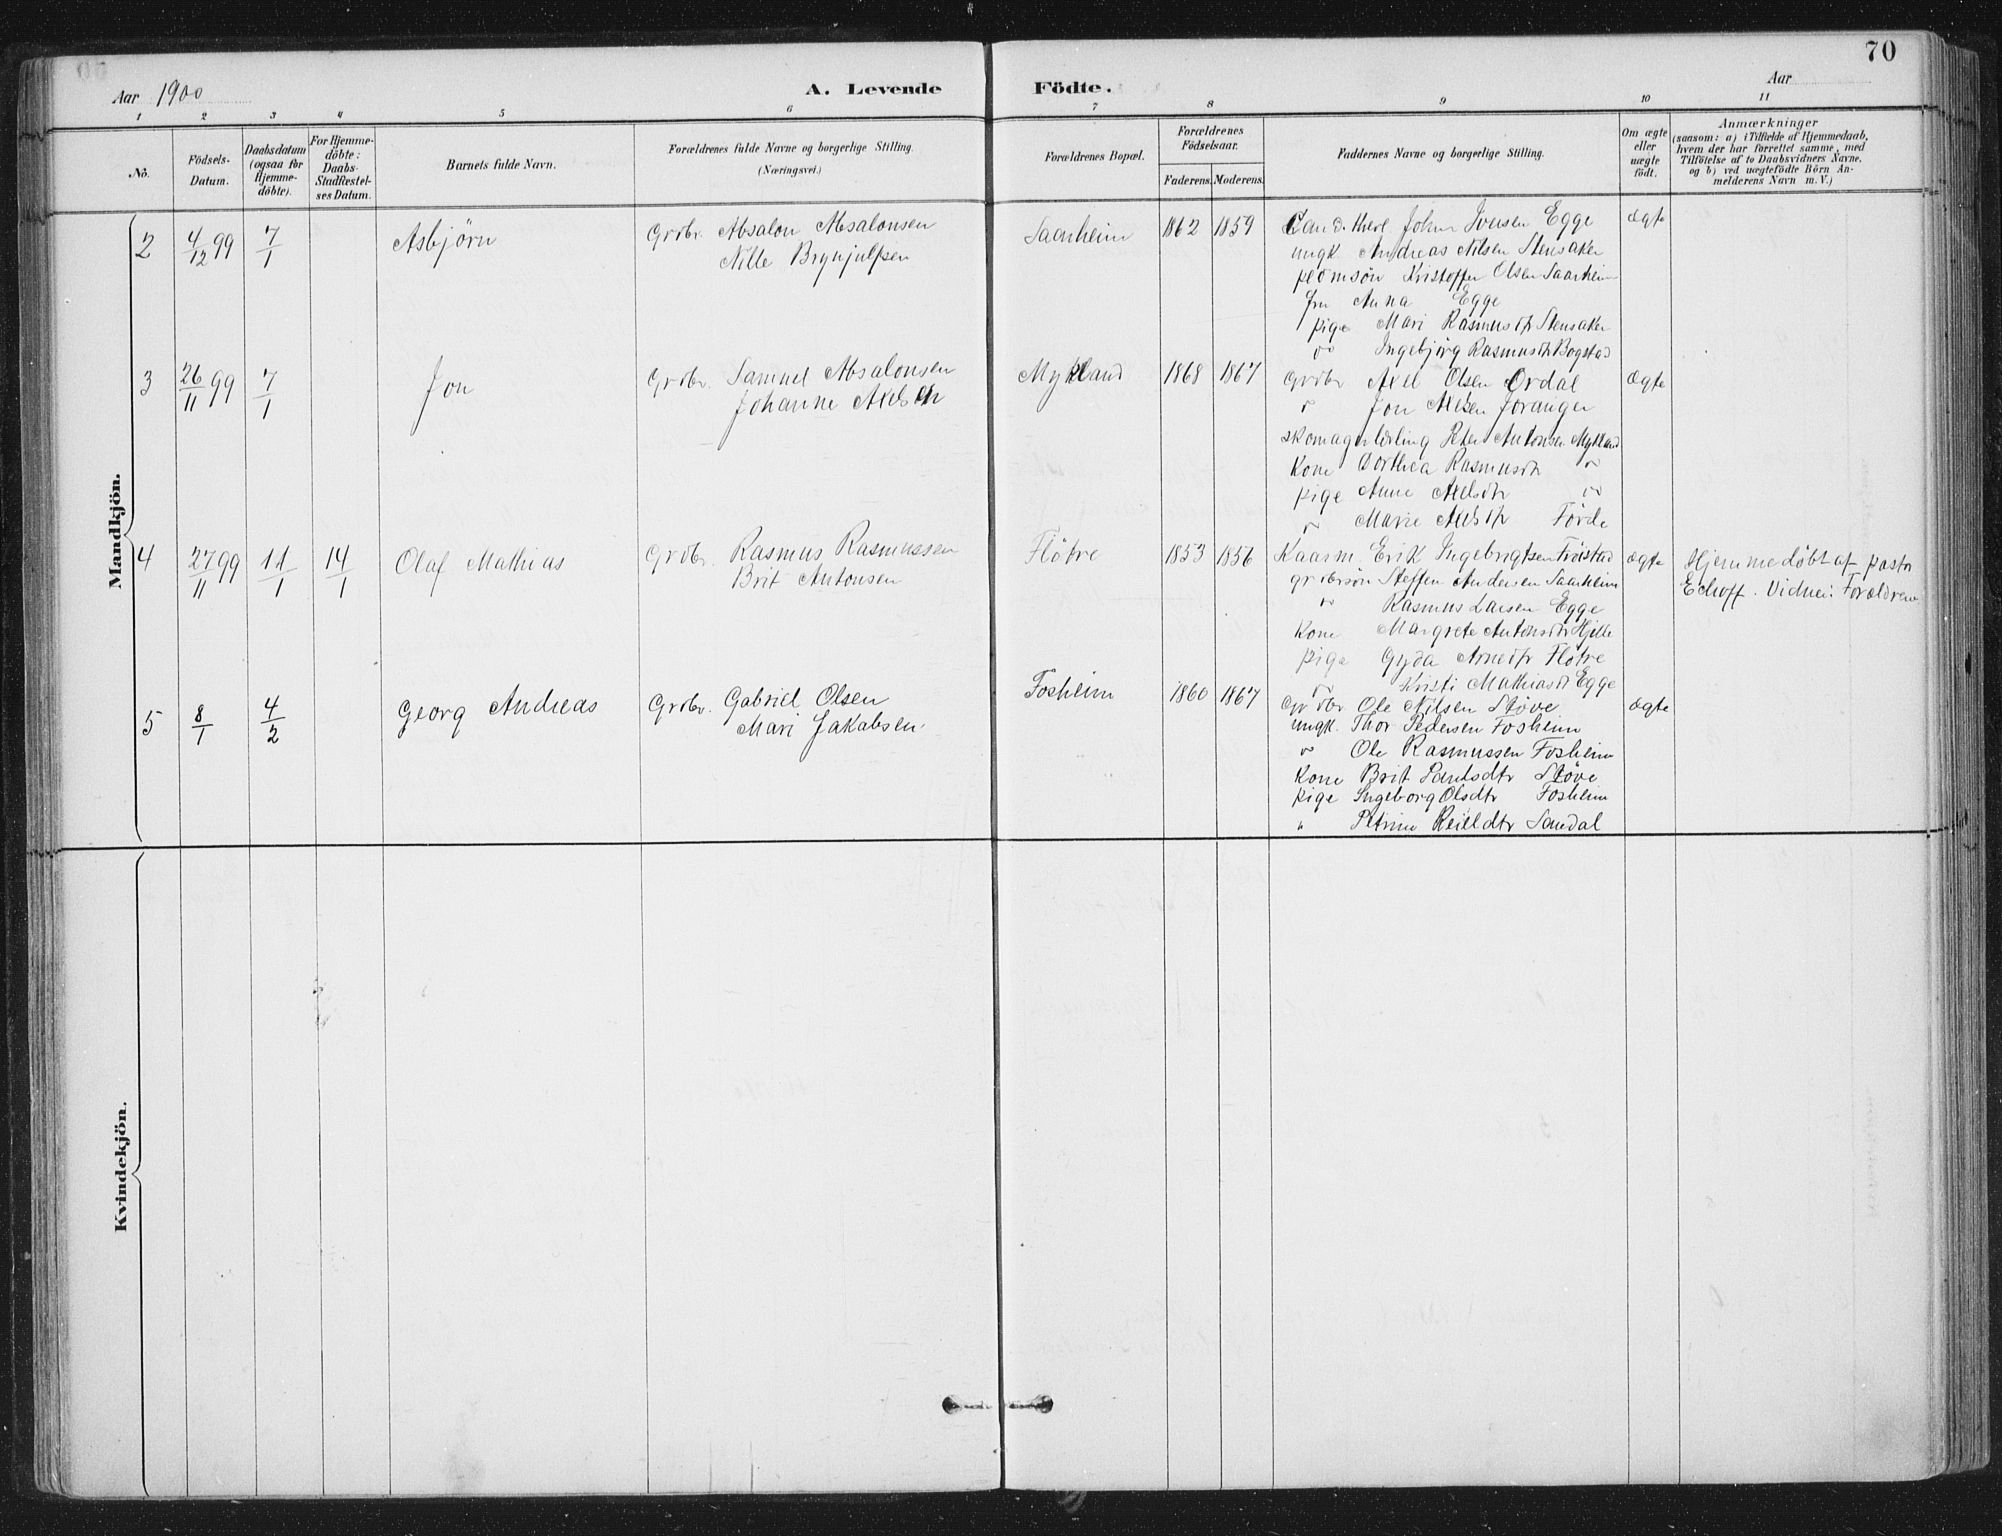 70
Aar 1900
A. Levende Födte.
Aar
1 2 3 4 5 6 7 8 9 10 11
No.
Födsels-Datum.
Daabsdatum (ogsaa for Hjemme-döbte).
For Hjemme-döbte: Daabs-Stadfæstel-ses Datum.
Barnets fulde Navn.
Forældrenes fulde Navne og borgerlige Stilling. (Næringsvei.)
Forældrenes Bopæl.
Forældrenes Födselsaar.
Faderens. Moderens.
Faddernes Navne og borgerlige Stilling.
Om ægte eller uægte födt.
Anmærkninger
(saasom: a) i Tilfælde af Hjemmedaab,
hvem der har forrettet samme, med
Tilföielse af to Daabsvidners Navne,
og b) ved uægtefödte Börn An-
melderens Navn m. V.)
Mandkjön.
2 4/12 99 7/1 Asbjörn Grdbr. Absalon Absalonsen
Nille Brynjulfsen
Saarheim 1862 1859 Cand. theol. Johan Ivensen Egge ægte
ungk. Andreas Nilsen Stensaker
Kristoffer Olsen Saarheim
fru Anna Egge
pige Mari Rasmusdtr Stensaker
Ingebjörg Rasmusdtr Bogstad
3 26/11 99 7/1 Jon Grdbr. Samuel Absalonsen
Johanne Axelsen
Mykland 1868 1867 Grdbr Axel Olsen Ordal ægte
Jon Axelsen Joranger
skomagerlærling Peter Antonsen Mykland
Kone Dorthea Rasmusdtr
pige Anne Axelsdtr
Marie Axelsdtr Förde
4 27/11 99 11/1 14/1 Olaf Mathias Grdbr. Rasmus Rasmussen
Brit Antonsen
Flötre 1853 1856 Kaarm. Erik Ingebrigtsen Fröistad ægte Hjemmedöbt af pastor
grdbrsön Steffen Andersen Saarheim Echoff. Vidner: Forældrene
Rasmus Larsen Egge
Kone Margrete Antonsdtr Hjelle
pige Gyda Arnedtr Flötre
Kristi Mathiasdtr Egge
5 8/1 4/2 Georg Andreas Grdbr. Gabriel Olsen
Mari Jakobsen
Fosheim 1860 1867 Grdbr Ole Nilsen Støve ægte
ungk. Thor Pedersen Fosheim
Ole Rasmussen Fosheim
Kone Brit Støve
pige Ingeborg Olsdtr Fosheim
" Petrine Sandal
Kvindekjön.